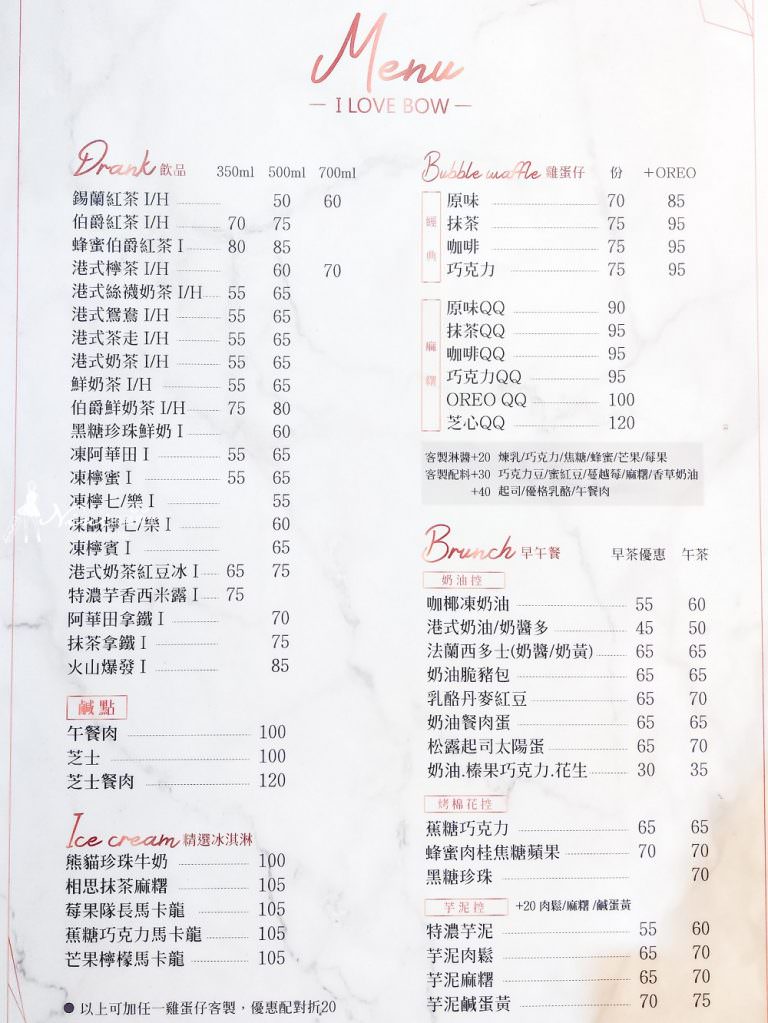 Menu
I LOVE BOW
Drank 飲品 350ml 500ml 700ml
錫蘭紅茶 I/H 50 60
伯爵紅茶 I/H 70 75
蜂蜜伯爵紅茶 I 80 85
港式檸茶 I/H 60 70
港式絲襪奶茶 I/H 55 65
港式鴛鴦 I/H 55 65
港式茶走 I/H 55 65
港式奶茶 I/H 55 65
鮮奶茶 I/H 55 65
伯爵鮮奶茶 I/H 75 80
黑糖珍珠鮮奶 I 60
凍阿華田 I 55 65
凍檸蜜 I 55 65
凍檸七/樂 I 55
凍鹹檸七/樂 I 60
凍檸賓 I 65
港式奶茶紅豆冰 I 65 75
特濃芋香西米露 I 75
阿華田拿鐵 I 70
抹茶拿鐵 I 75
火山爆發 I 85
鹹點
午餐肉 100
芝士 100
芝士餐肉 120
Ice cream 精選冰淇淋
熊貓珍珠牛奶 100
相思抹茶麻糬 105
莓果隊長馬卡龍 105
蕉糖巧克力馬卡龍 105
芒果檸檬馬卡龍 105
● 以上可加任一雞蛋仔客製，優惠配對折20
Bubble waffle 雞蛋仔 份 +OREO
經典
原味 70 85
抹茶 75 95
咖啡 75 95
巧克力 75 95
麻糬
原味QQ 90
抹茶QQ 95
咖啡QQ 95
巧克力QQ 95
OREO QQ 100
芝心QQ 120
客製淋醬+20 煉乳/巧克力/焦糖/蜂蜜/芒果/莓果
客製配料+30 巧克力豆/蜜紅豆/蔓越莓/麻糬/香草奶油
+40 起司/優格乳酪/午餐肉
Brunch 早午餐 早茶優惠 午茶
奶油控
咖椰凍奶油 55 60
港式奶油/奶醬多 45 50
法蘭西多士(奶醬/奶黃) 65 65
奶油脆豬包 65 65
乳酪丹麥紅豆 65 70
奶油餐肉蛋 65 65
松露起司太陽蛋 65 70
奶油.榛果巧克力.花生 30 35
烤棉花控
蕉糖巧克力 65 65
蜂蜜肉桂焦糖蘋果 70 70
黑糖珍珠 70
芋泥控 +20 肉鬆/麻糬/鹹蛋黃
特濃芋泥 55 60
芋泥肉鬆 65 70
芋泥麻糬 65 70
芋泥鹹蛋黃 70 75